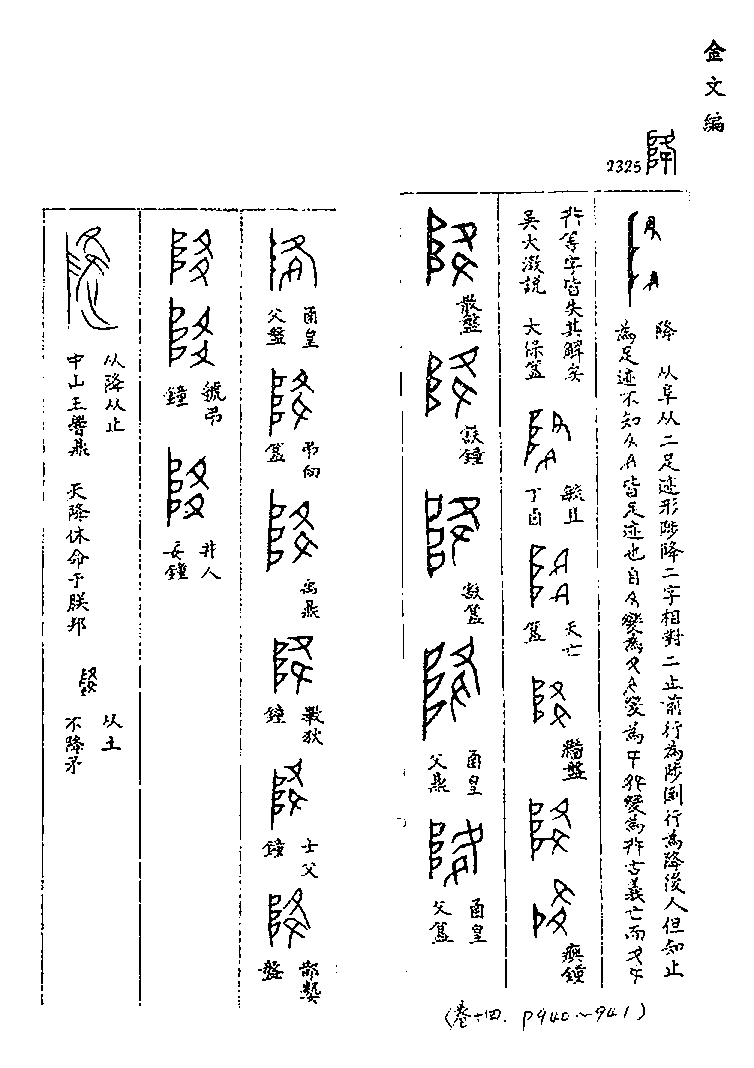 金文編
2325
降 从阜从二足迹形陟降二字相對二止前行為陟倒行為降後人但知止
為足迹不知 皆足迹也自 變為夂 變為㐄 變為 古義亡而夂㐄
等字皆失其解矣
吳大澂說 大保簋
毓且
丁卣
天亡
簋
牆盤
㾓鐘
散盤
㝬鐘
㝬簋
圅皇
父鼎
圅皇
父簋
圅皇
父盤
弔向
簋
禹鼎
㪤狄
鐘
士父
鐘
盤
虢弔
鐘
井人
妄鐘
从降从止
中山王䰜鼎 天降休命于朕邦
从土
不降矛
(卷十四. P940~941)